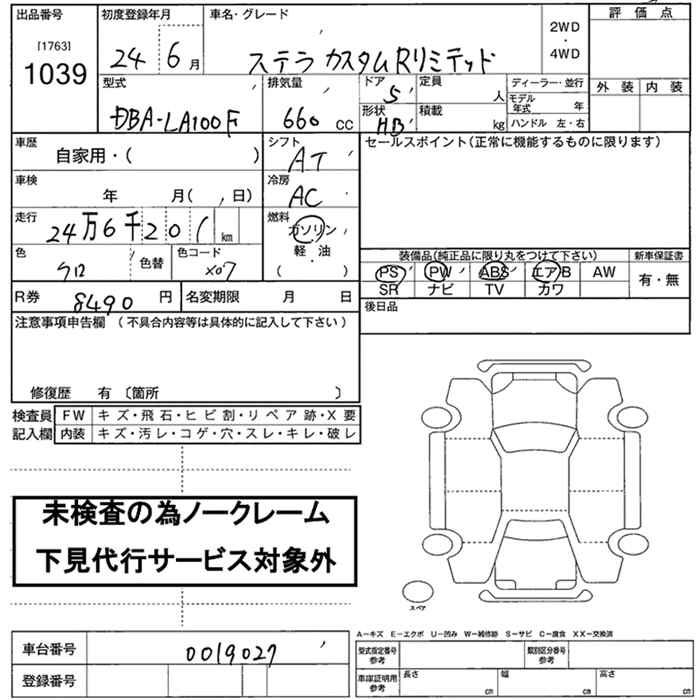 出品番号 初度登録年月 車名・グレード 評価点
[1763]
1039
24 6月 ステラ カスタムRリミテッド 2WD・4WD
外装 内装
型式 排気量 ドア 定員 ディーラー・並行
DBA-LA100F 660 CC 5 人 モデル年式 年
形状 積載 ハンドル 左・右
HB kg
車歴 シフト セールスポイント(正常に機能するものに限ります)
自家用・( ) AT
車検 冷房
年 月( , 日) AC
走行 燃料
24万6千201 km ガソリン・軽・油
( )
色 色替 色コード 装備品(純正品に限り丸をつけて下さい) 新車保証書
クロ X07 PS PW ABS エアB AW 有・無
SR ナビ TV カワ
R券 8490 円 名変期限 月 日 後日品
注意事項申告欄 (不具合内容等は具体的に記入して下さい)
修復歴 有 〔箇所 〕
検査員 FW キズ・飛石・ヒビ割・リペア跡・X要
記入欄 内装 キズ・汚レ・コゲ・穴・スレ・キレ・破レ
未検査の為ノークレーム
下見代行サービス対象外
スペア
A−キズ E−エクボ U−凹み W−補修跡 S−サビ C−腐食 XX−交換済
車台番号 0019027 型式指定番号 参考 類別区分番号 参考
登録番号 車庫証明用 参考 長さ cm 幅 cm 高さ cm